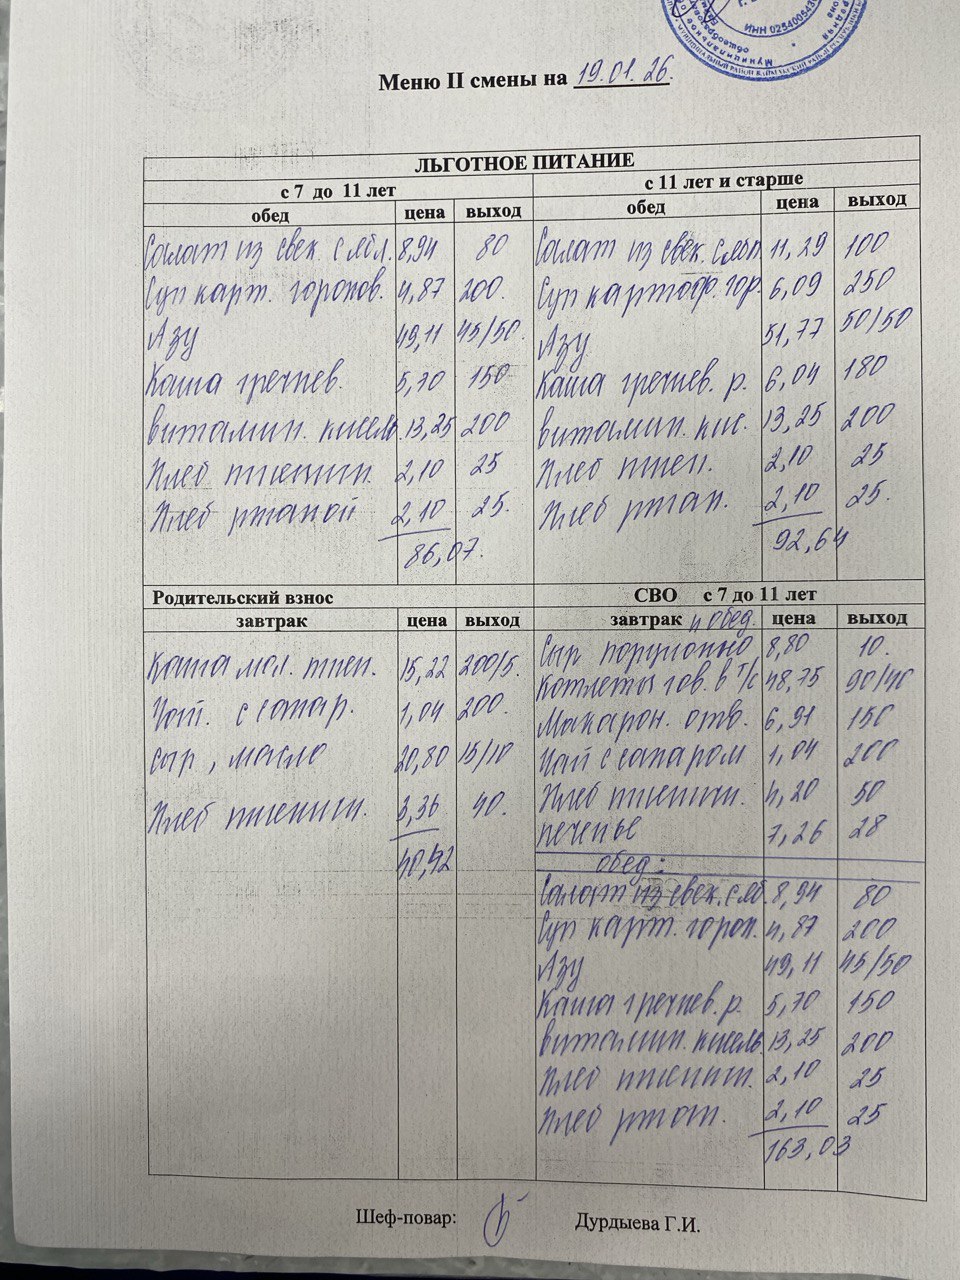 ИНН 0254005436
Меню II смены на 19.01.26.
ЛЬГОТНОЕ ПИТАНИЕ
с 7 до 11 лет
обед цена выход
Салат из свек. с ябл. 8,94 80
Суп карт. горохов. 4,87 200.
Азу 49,11 45/50.
Каша гречнев. 5,70 150
витамин. кисель. 13,25 200
Хлеб пшенич. 2,10 25
Хлеб ржаной 2,10 25.
86,07.
с 11 лет и старше
обед цена выход
Салат из свек. с ябл. 11,29 100
Суп картоф. гор. 6,09 250
Азу 51,77 50/50
Каша гречнев. р. 6,04 180
витамин. кис. 13,25 200
Хлеб пшен. 2,10 25
Хлеб ржан. 2,10 25.
92,64
Родительский взнос
завтрак цена выход
Каша мол. пшен. 15,22 200/5.
Чай. с сахар. 1,04 200.
сыр, масло 20,80 15/10
Хлеб пшенич. 3,36 40.
40,42
СВО с 7 до 11 лет
завтрак и обед. цена выход
Сыр порционно 8,80 10.
Котлеты гов. в т/с 48,75 90/40
Макарон. отв. 6,91 150
Чай с сахаром 1,04 200
Хлеб пшенич. 4,20 50
печенье 7,26 28
обед:
Салат из свек. с яб. 8,94 80
Суп карт. горох. 4,87 200
Азу 49,11 45/50
Каша гречнев. р. 5,70 150
витамин. кисель. 13,25 200
Хлеб пшенич. 2,10 25
Хлеб ржан. 2,10 25
163,03
Шеф-повар: Дурдыева Г.И.